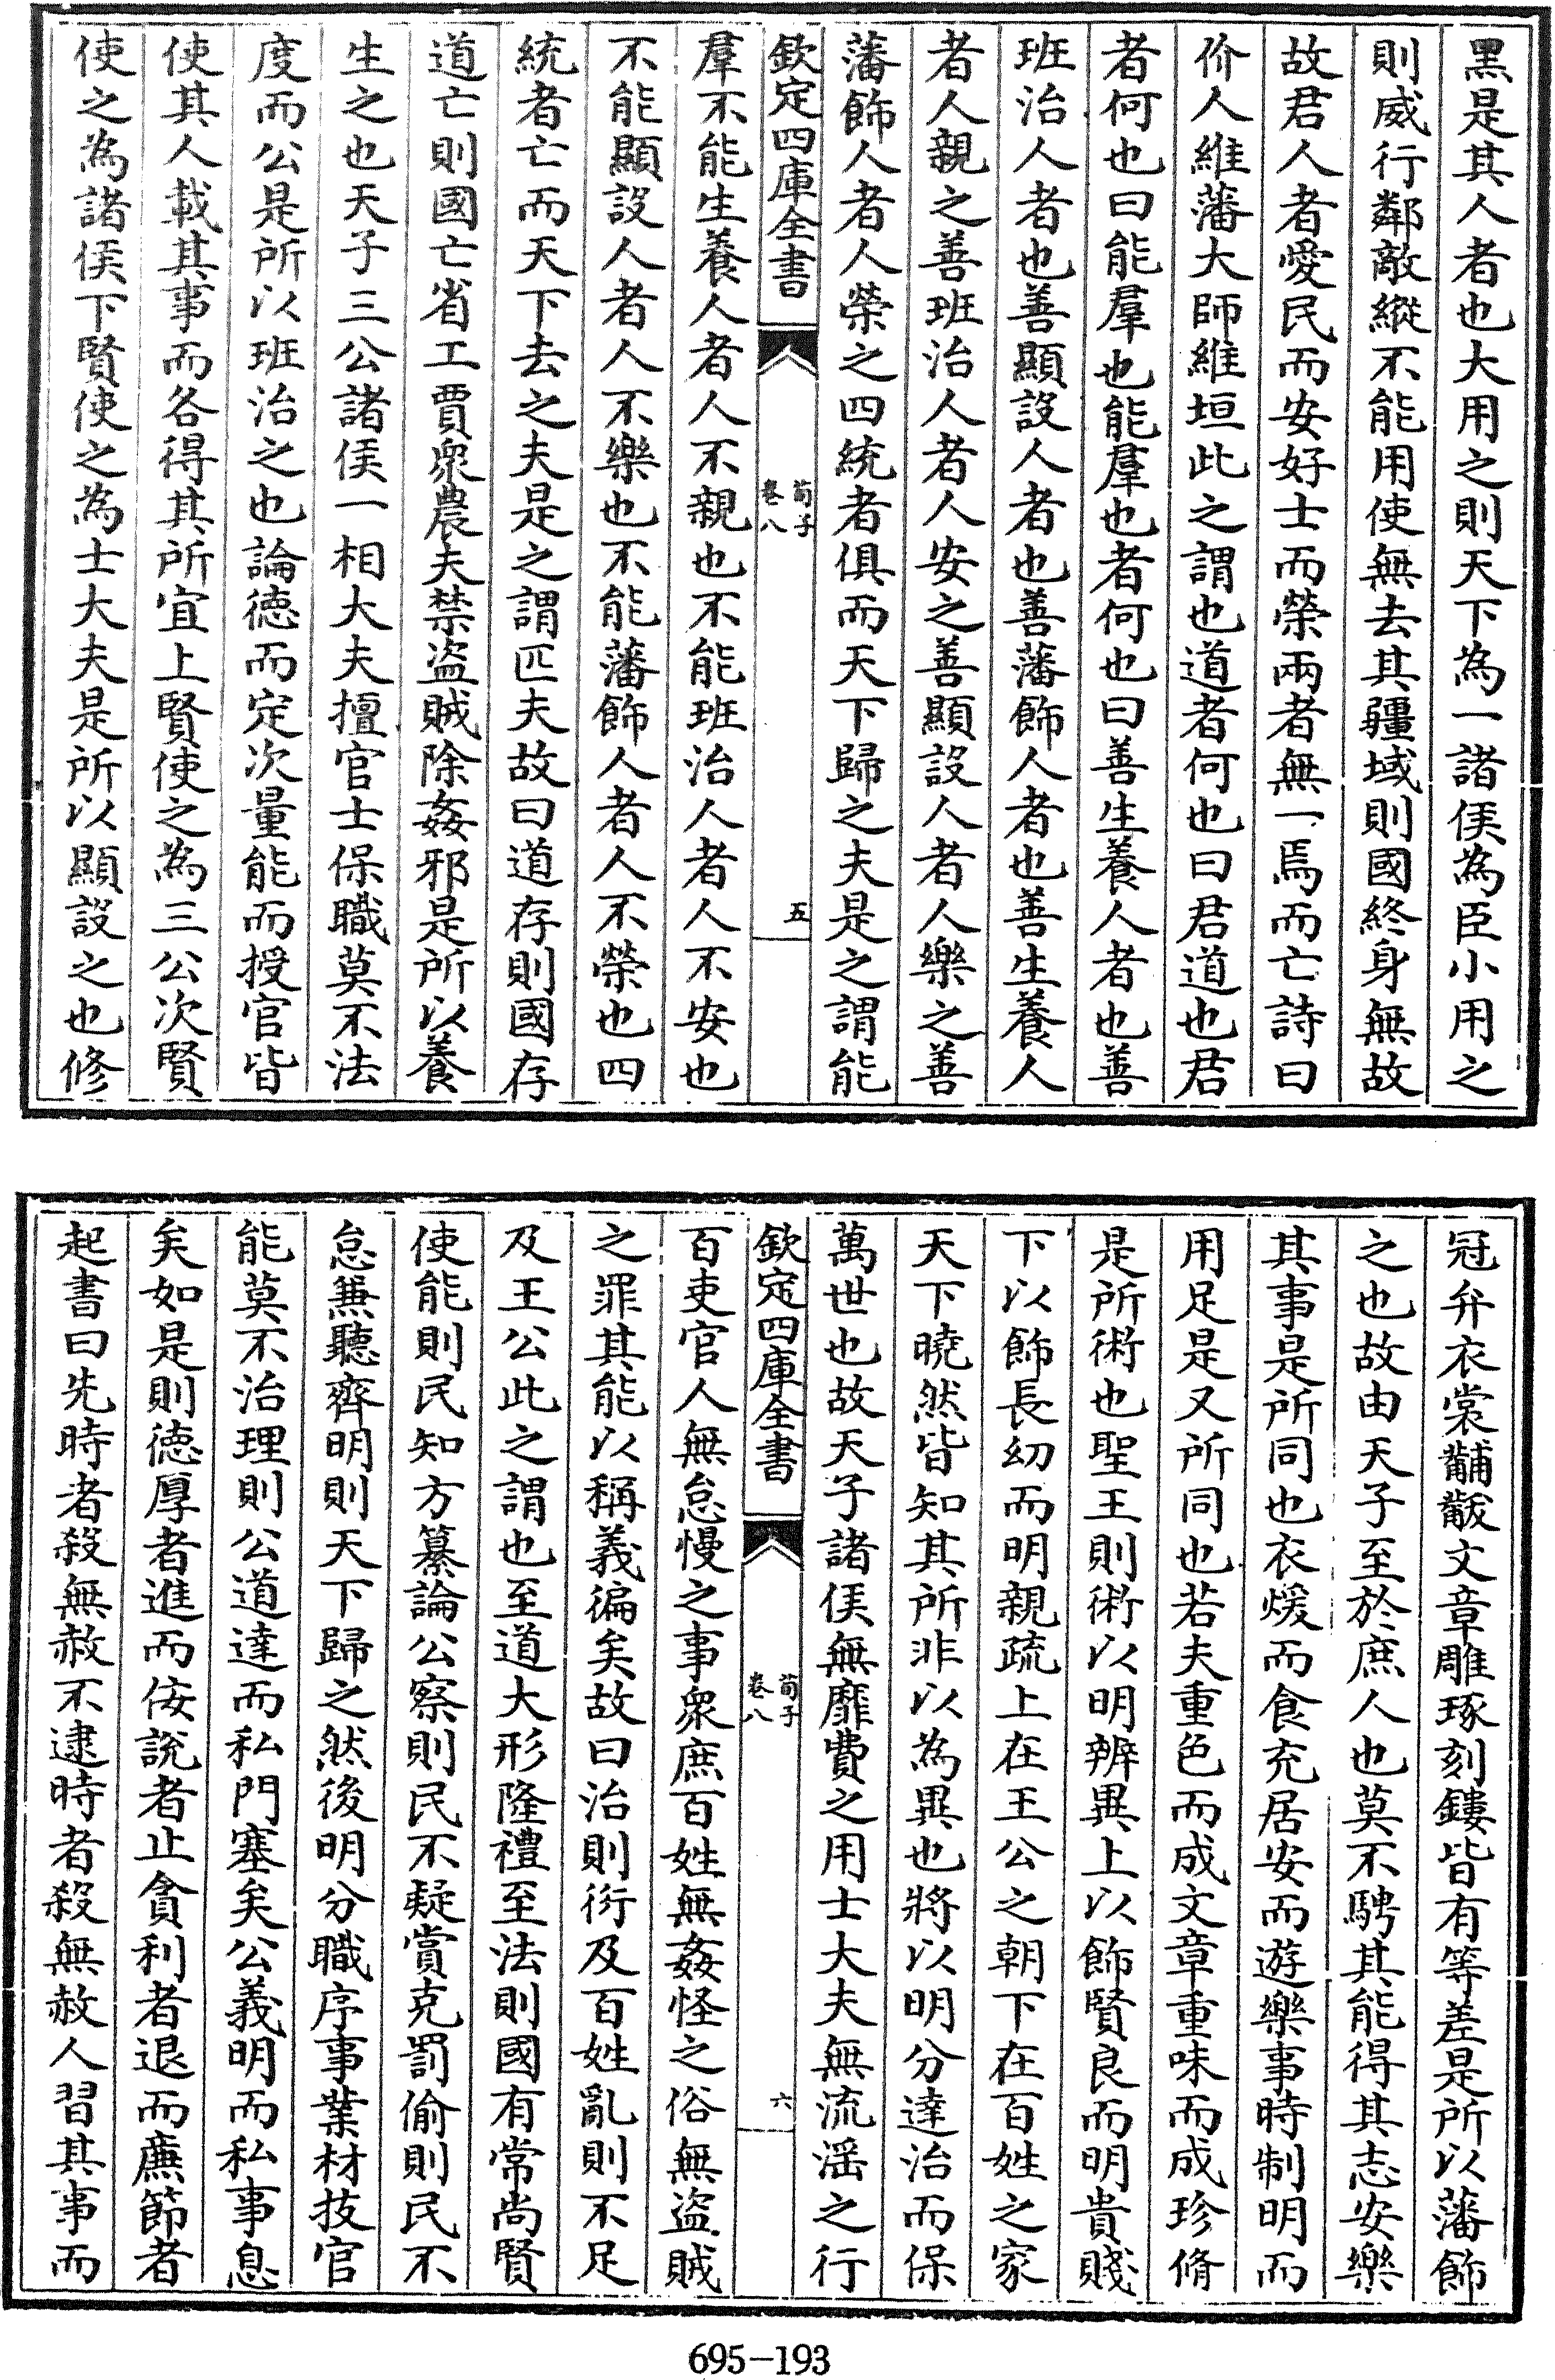 黑是其人者也大用之則天下為一諸侯為臣小用之
則威行鄰敵縱不能用使無去其疆域則國終身無故
故君人者愛民而安好士而榮兩者無一焉而亡詩曰
价人維藩大師維垣此之謂也道者何也曰君道也君
者何也曰能羣也能羣也者何也曰善生養人者也善
班治人者也善顯設人者也善藩飾人者也善生養人
者人親之善班治人者人安之善顯設人者人樂之善
藩飾人者人榮之四統者俱而天下歸之夫是之謂能
欽定四庫全書
荀子
卷八
五
羣不能生養人者人不親也不能班治人者人不安也
不能顯設人者人不樂也不能藩飾人者人不榮也四
統者亡而天下去之夫是之謂匹夫故曰道存則國存
道亡則國亡省工賈衆農夫禁盗賊除姦邪是所以養
生之也天子三公諸侯一相大夫擅官士保職莫不法
度而公是所以班治之也論徳而定次量能而授官皆
使其人載其事而各得其所宜上賢使之為三公次賢
使之為諸侯下賢使之為士大夫是所以顯設之也修
冠弁衣裳黼黻文章雕琢刻鏤皆有等差是所以藩飾
之也故由天子至於庶人也莫不騁其能得其志安樂
其事是所同也衣煖而食充居安而遊樂事時制明而
用足是又所同也若夫重色而成文章重味而成珍脩
是所術也聖王則術以明辨異上以飾賢良而明貴賤
下以飾長幼而明親疏上在王公之朝下在百姓之家
天下曉然皆知其所非以為異也將以明分達治而保
萬世也故天子諸侯無靡費之用士大夫無流滛之行
欽定四庫全書
荀子
卷八
六
百吏官人無怠慢之事衆庶百姓無姦怪之俗無盗賊
之罪其能以稱義徧矣故曰治則衍及百姓亂則不足
及王公此之謂也至道大形隆禮至法則國有常尚賢
使能則民知方纂論公察則民不疑賞克罰偷則民不
怠兼聽齊明則天下歸之然後明分職序事業材技官
能莫不治理則公道達而私門塞矣公義明而私事息
矣如是則徳厚者進而佞說者止貪利者退而廉節者
起書曰先時者殺無赦不逮時者殺無赦人習其事而
695-193